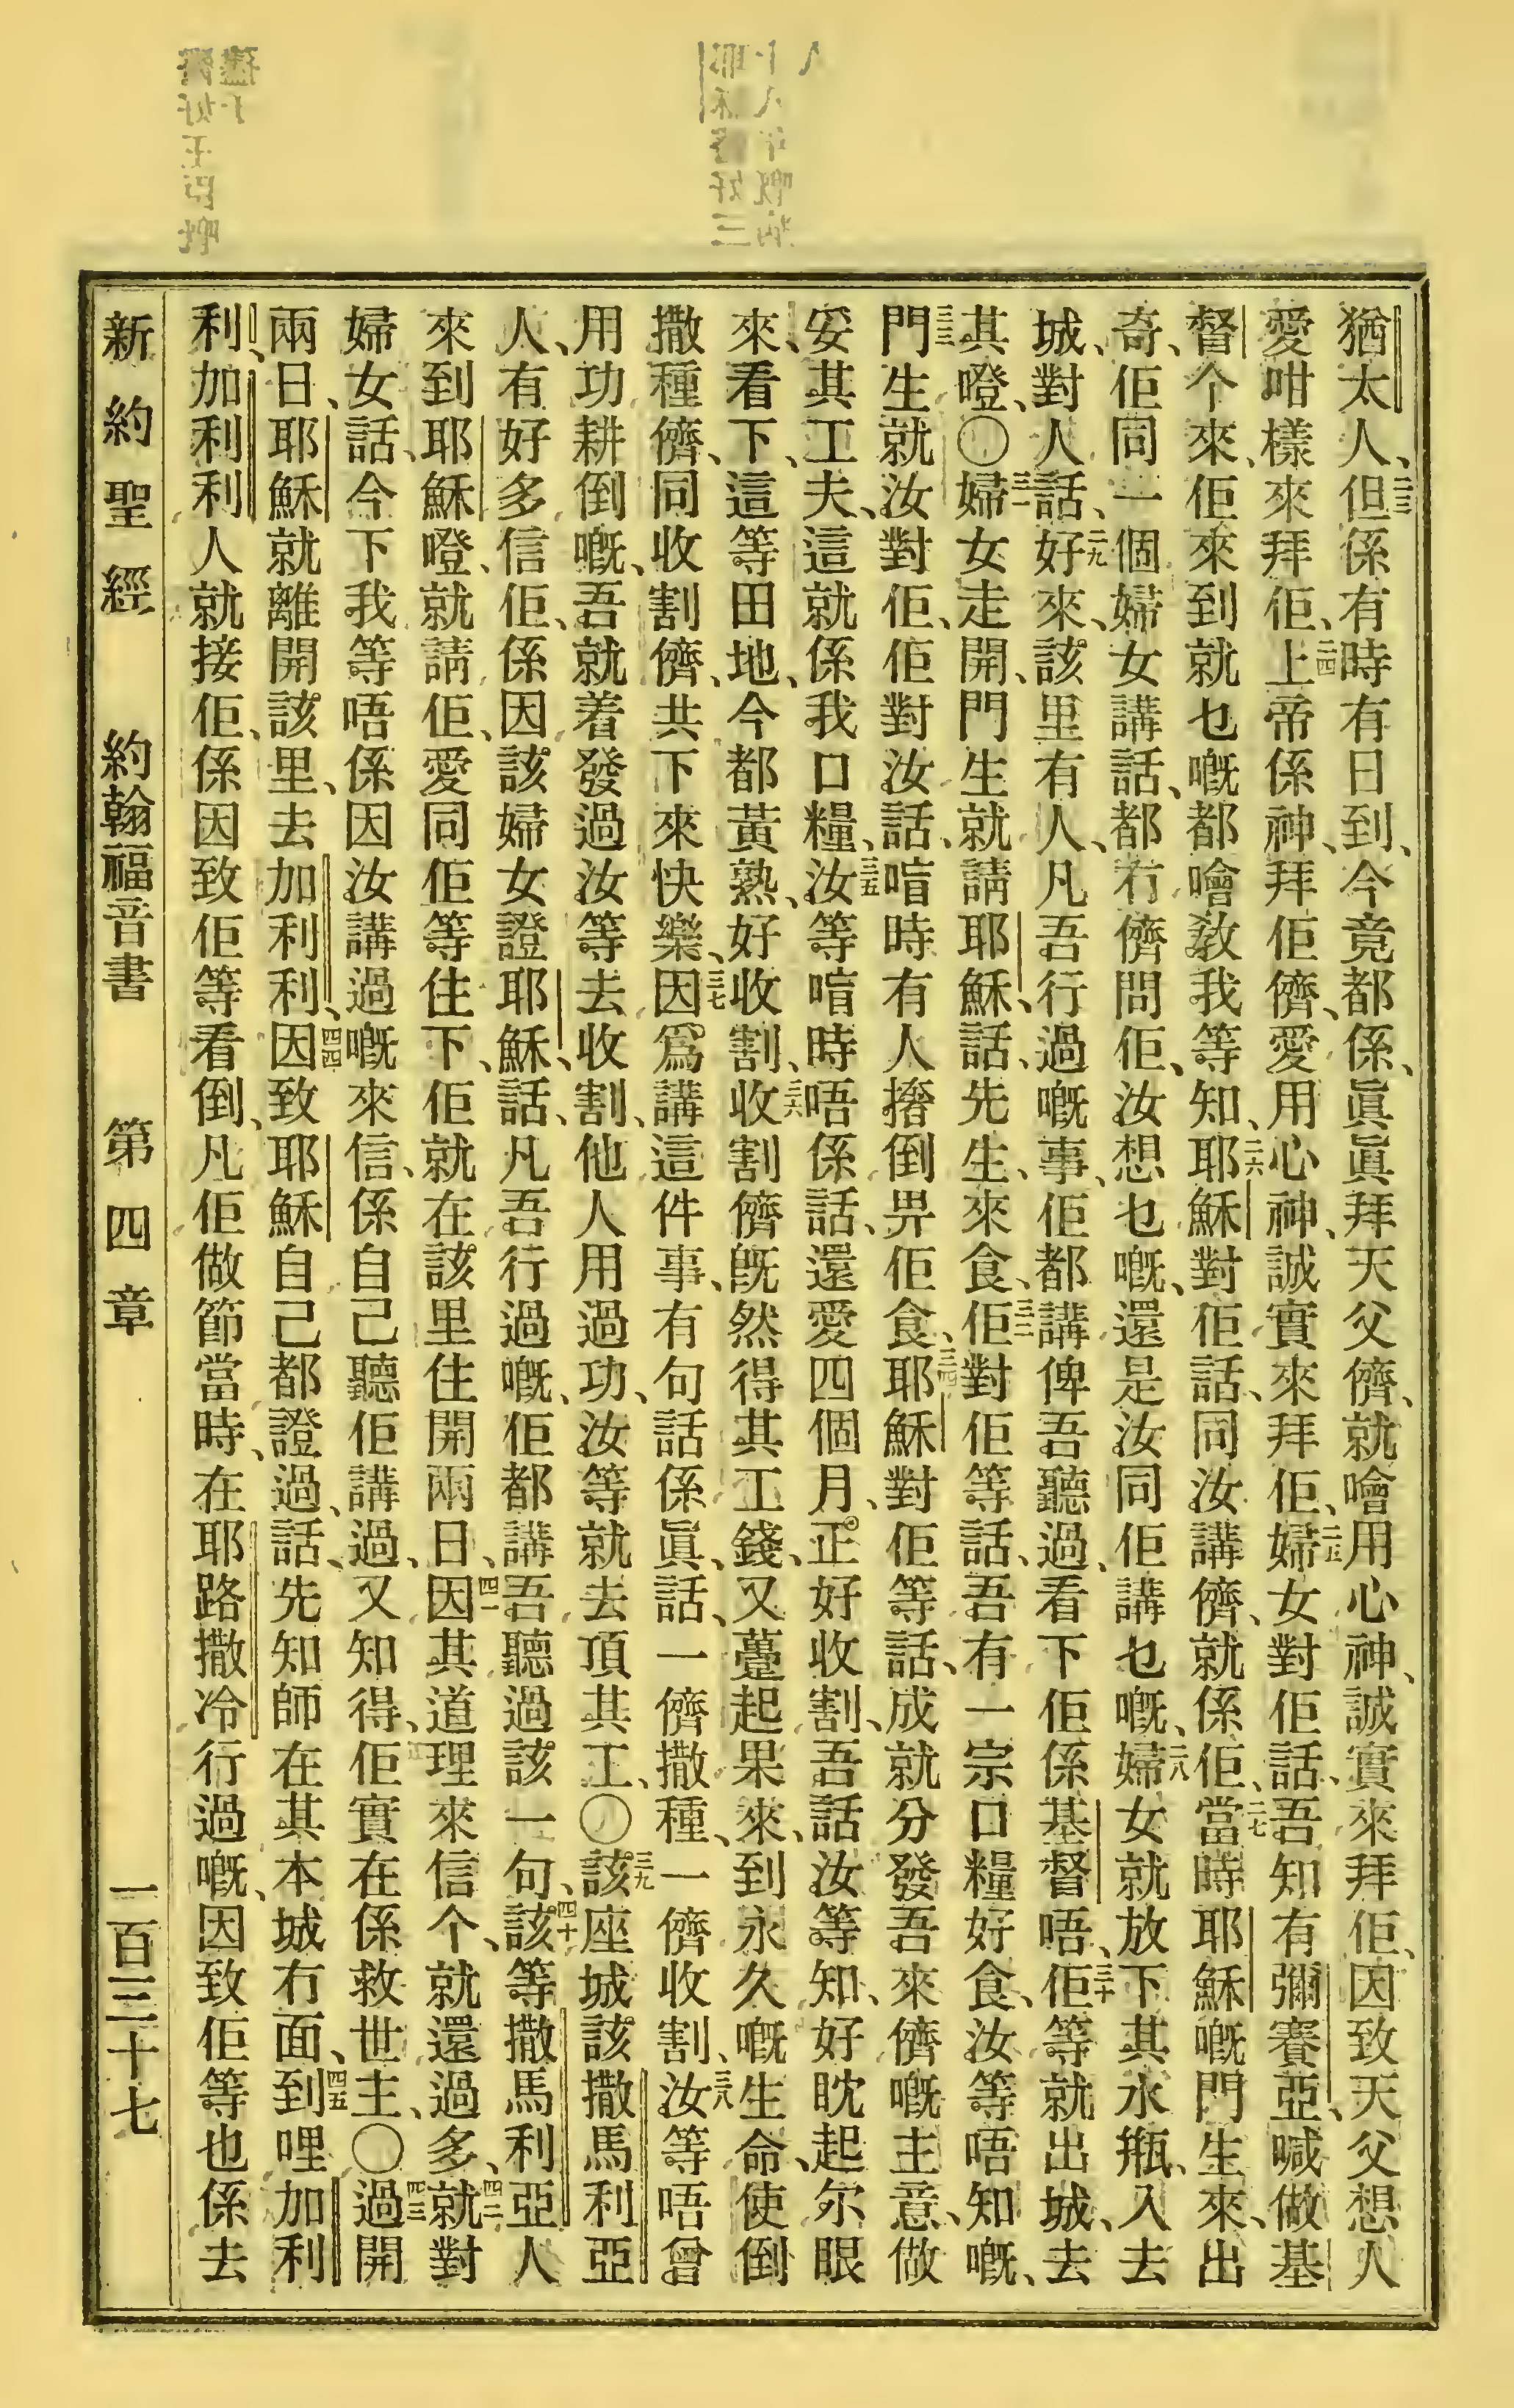 猶太人、二三但係有時有日到、今竟都係、眞眞拜天父儕、就噲用心神、誠實來拜佢、因致天父想人
愛咁樣來拜佢、二四上帝係神、拜佢儕、愛用心神、誠實來拜佢、二五婦女對佢話、吾知有彌賽亞、喊做基
督个來、佢來到就乜嘅都噲教我等知、二六耶穌對佢話、同汝講儕、就係佢、二七當時耶穌嘅門生來、出
奇、佢同一個婦女講話、都冇儕問佢、汝想乜嘅、還是汝同佢講乜嘅、二八婦女就放下其水瓶、入去
城、對人話、二九好來、該里有人、凡吾行過嘅事、佢都講俾吾聽過、看下佢係基督唔、三十佢等就出城、去
其噔、〇三一婦女走開、門生就請耶穌、話、先生、來食、三二佢對佢等話、吾有一宗口糧好食、汝等唔知嘅、
三三門生就汝對佢、佢對汝話、喧時有人撘倒畀佢食、三四耶穌對佢等話、成就分發吾來儕嘅主意、做
妥其工夫、這就係我口糧、三五汝等喧時唔係話、還愛四個月、正好收割、吾話汝等知、好眈起尔眼
來、看下、這等田地、今都黃熟、好收割、三六收割儕旣然得其工錢、又躉起果來、到永久嘅生命、使倒
撒種儕、同收割儕、共下來快樂、三七因爲講這件事、有句話係眞、話、一儕撒種、一儕收割、三八汝等唔曾
用功耕倒嘅、吾就着發過汝等去收割、他人用過功、汝等就去頂其工、〇三九該座城該撒馬利亞
人、有好多信佢、係因該婦女證耶穌、話、凡吾行過嘅、佢都講吾聽過該一句、四十該等撒馬利亞人
來到耶穌噔、就請佢、愛同佢等住下、佢就在該里住開兩日、四一因其道理來信个、就還過多、四二就對
婦女話、今下我等唔係因汝講過嘅來信、係自己聽佢講過、又知得、佢實在係救世主、〇四三過開
兩日、耶穌就離開該里、去加利利、四四因致耶穌自己都證過、話、先知師在其本城冇面、四五到哩加利
利、加利利人就接佢、係因致佢等看倒、凡佢做節當時、在耶路撒冷行過嘅、因致佢等也係去
新約聖經 約翰福音書 第四章 一百三十七